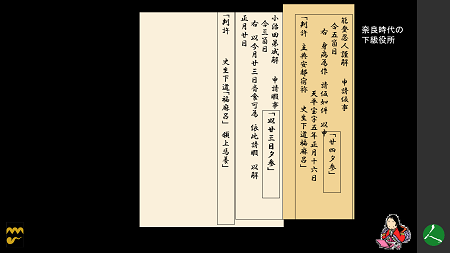 奈良時代の
下級役所
能登忍人謹解　申請仮事
合五箇日
「廿四夕参」
右　身病為作　請仮如件　以申
天平宝字五年正月十六日
「判許　主典安都宿祢　史生下道福麻呂」
小治田弟成解　申請暇事
合三箇日
「以廿三日夕参」
右　以今月廿三日斎食可為　依此請暇　以解
正月廿日
「判許　史生下道「福麻呂」　領上馬養」